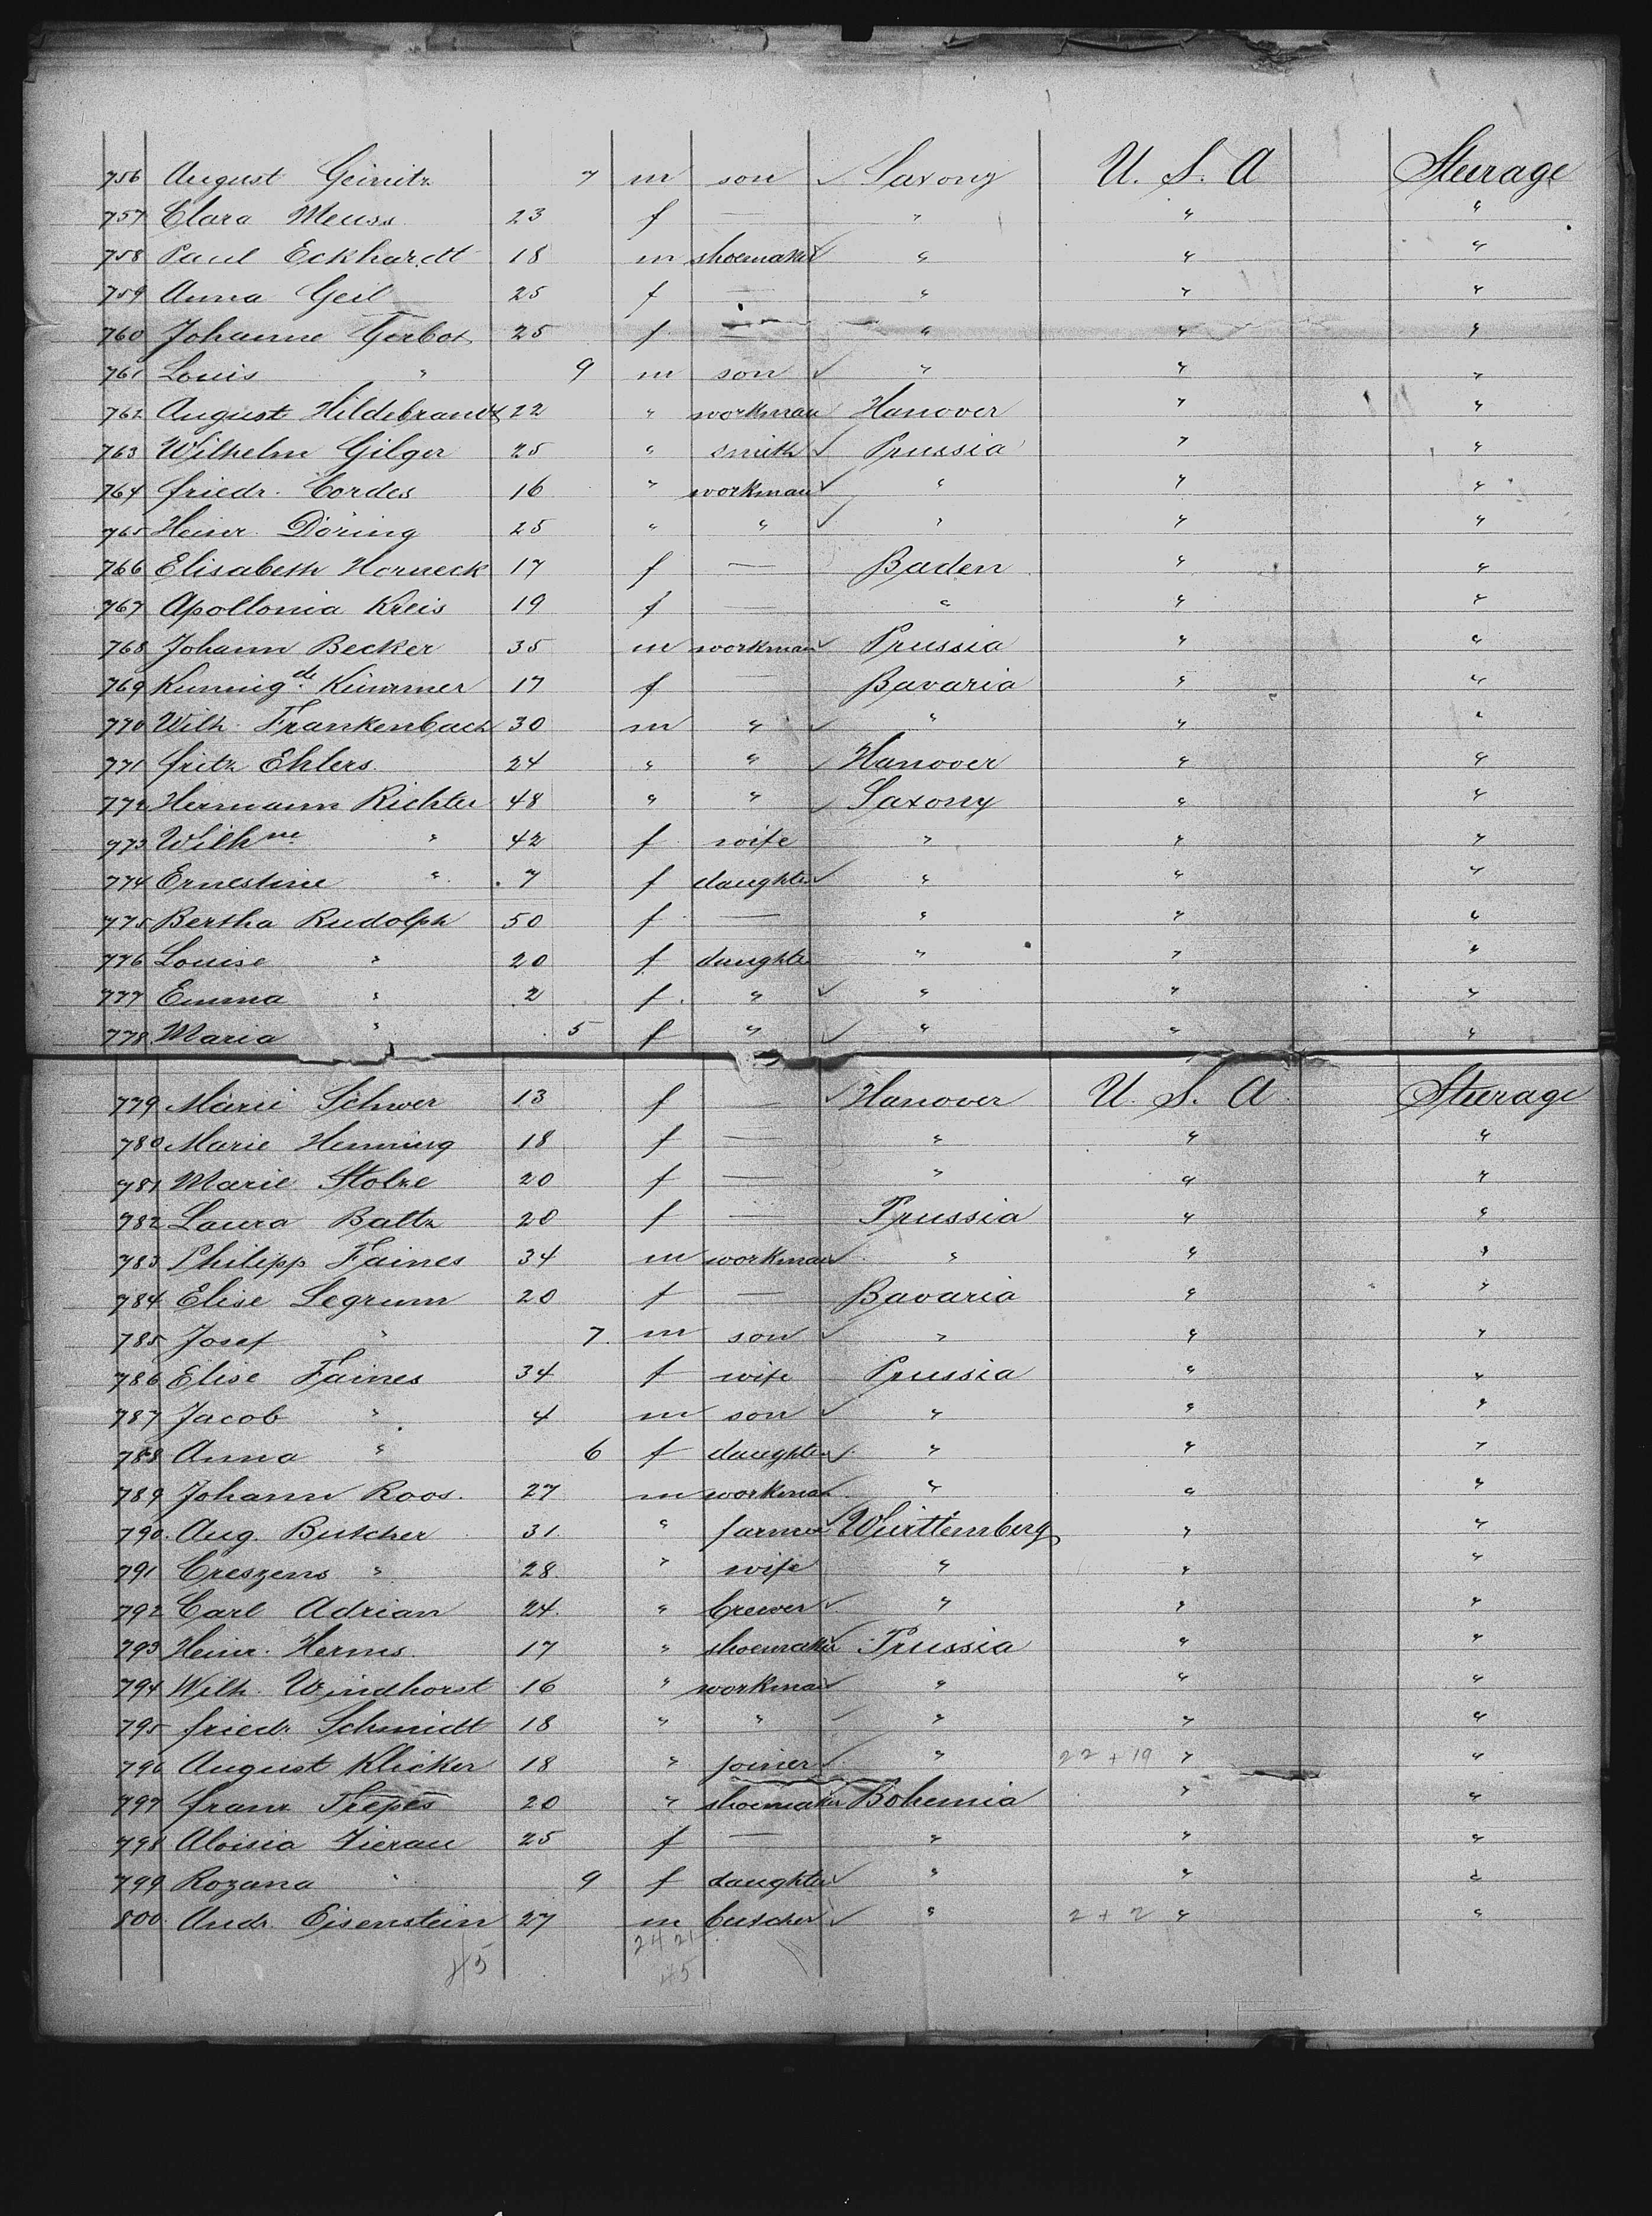 756 August Geinitz 7 m son ✓ Saxony U. S. A Steerage
757 Clara Meuss 23 f — " " "
758 Paul Eckhardt 18 m shoemaker ✓ " " "
759 Anna Geil 25 f — " " "
760 Johanne Gerbot 25 f — " " "
761 Louis " 9 m son ✓ " " "
762 August Hildebrandt 22 " workman Hanover " "
763 Wilhelm Gilger 25 " smith ✓ Prussia " "
764 friedr. Cordes 16 " workman ✓ " " "
765 Heinr. Döring 25 " " ✓ " " "
766 Elisabeth Horneck 17 f — Baden " "
767 Apollonia Kreis 19 f — " " "
768 Johann Becker 35 m workman ✓ Prussia " "
769 Kunnigde. Kümmer 17 f — Bavaria " "
770 Wilh. Frankenbach 30 m " ✓ " " "
771 fritz Ehlers 24 " " ✓ Hanover " "
772 Hermann Richter 48 " " ✓ Saxony " "
773 Wilhne. " 42 f wife " " "
774 Ernestine " 7 f daughter ✓ " " "
775 Bertha Rudolph 50 f — " " "
776 Louise " 20 f daughter " " "
777 Emma " 2 f " ✓ " " "
778 Maria " 5 f " ✓ " " "
779 Marie Schwer 13 f — ✓ Hanover U. S. A Steerage
780 Marie Henning 18 f — " " "
781 Marie Stolze 20 f — " " "
782 Laura Baltz 20 f — Prussia " "
783 Philipp Faines 34 m workman ✓ " " "
784 Elise Legrum 20 f — Bavaria " "
785 Josef " 7 m son ✓ " " "
786 Elise Faines 34 f wife Prussia " "
787 Jacob " 4 m son ✓ " " "
788 Anna " 6 f daughter ✓ " " "
789 Johann Roos. 27 m workman ✓ " " "
790 Aug. Butcher 31 " farmer ✓ Württemberg " "
791 Creszens " 28 " wife " " "
792 Carl Adrian 24 " brewer ✓ " " "
793 Heinr. Herms. 17 " shoemaker ✓ Prussia " "
794 Wilh. Windhorst 16 " workman ✓ " " "
795 friedr. Schmidt 18 " " " " "
796 August Klicker 18 " joiner ✓ " 22 + 19 " "
797 franz Trepes 20 " shoemaker Bohemia " "
798 Aloisia Zierau 25 f — " " "
799 Rozana " 9 f daughter ✓ " " "
800 Andr. Eisenstein 27 m butcher ✓ " 2 + 2 " "
24 21
45 45